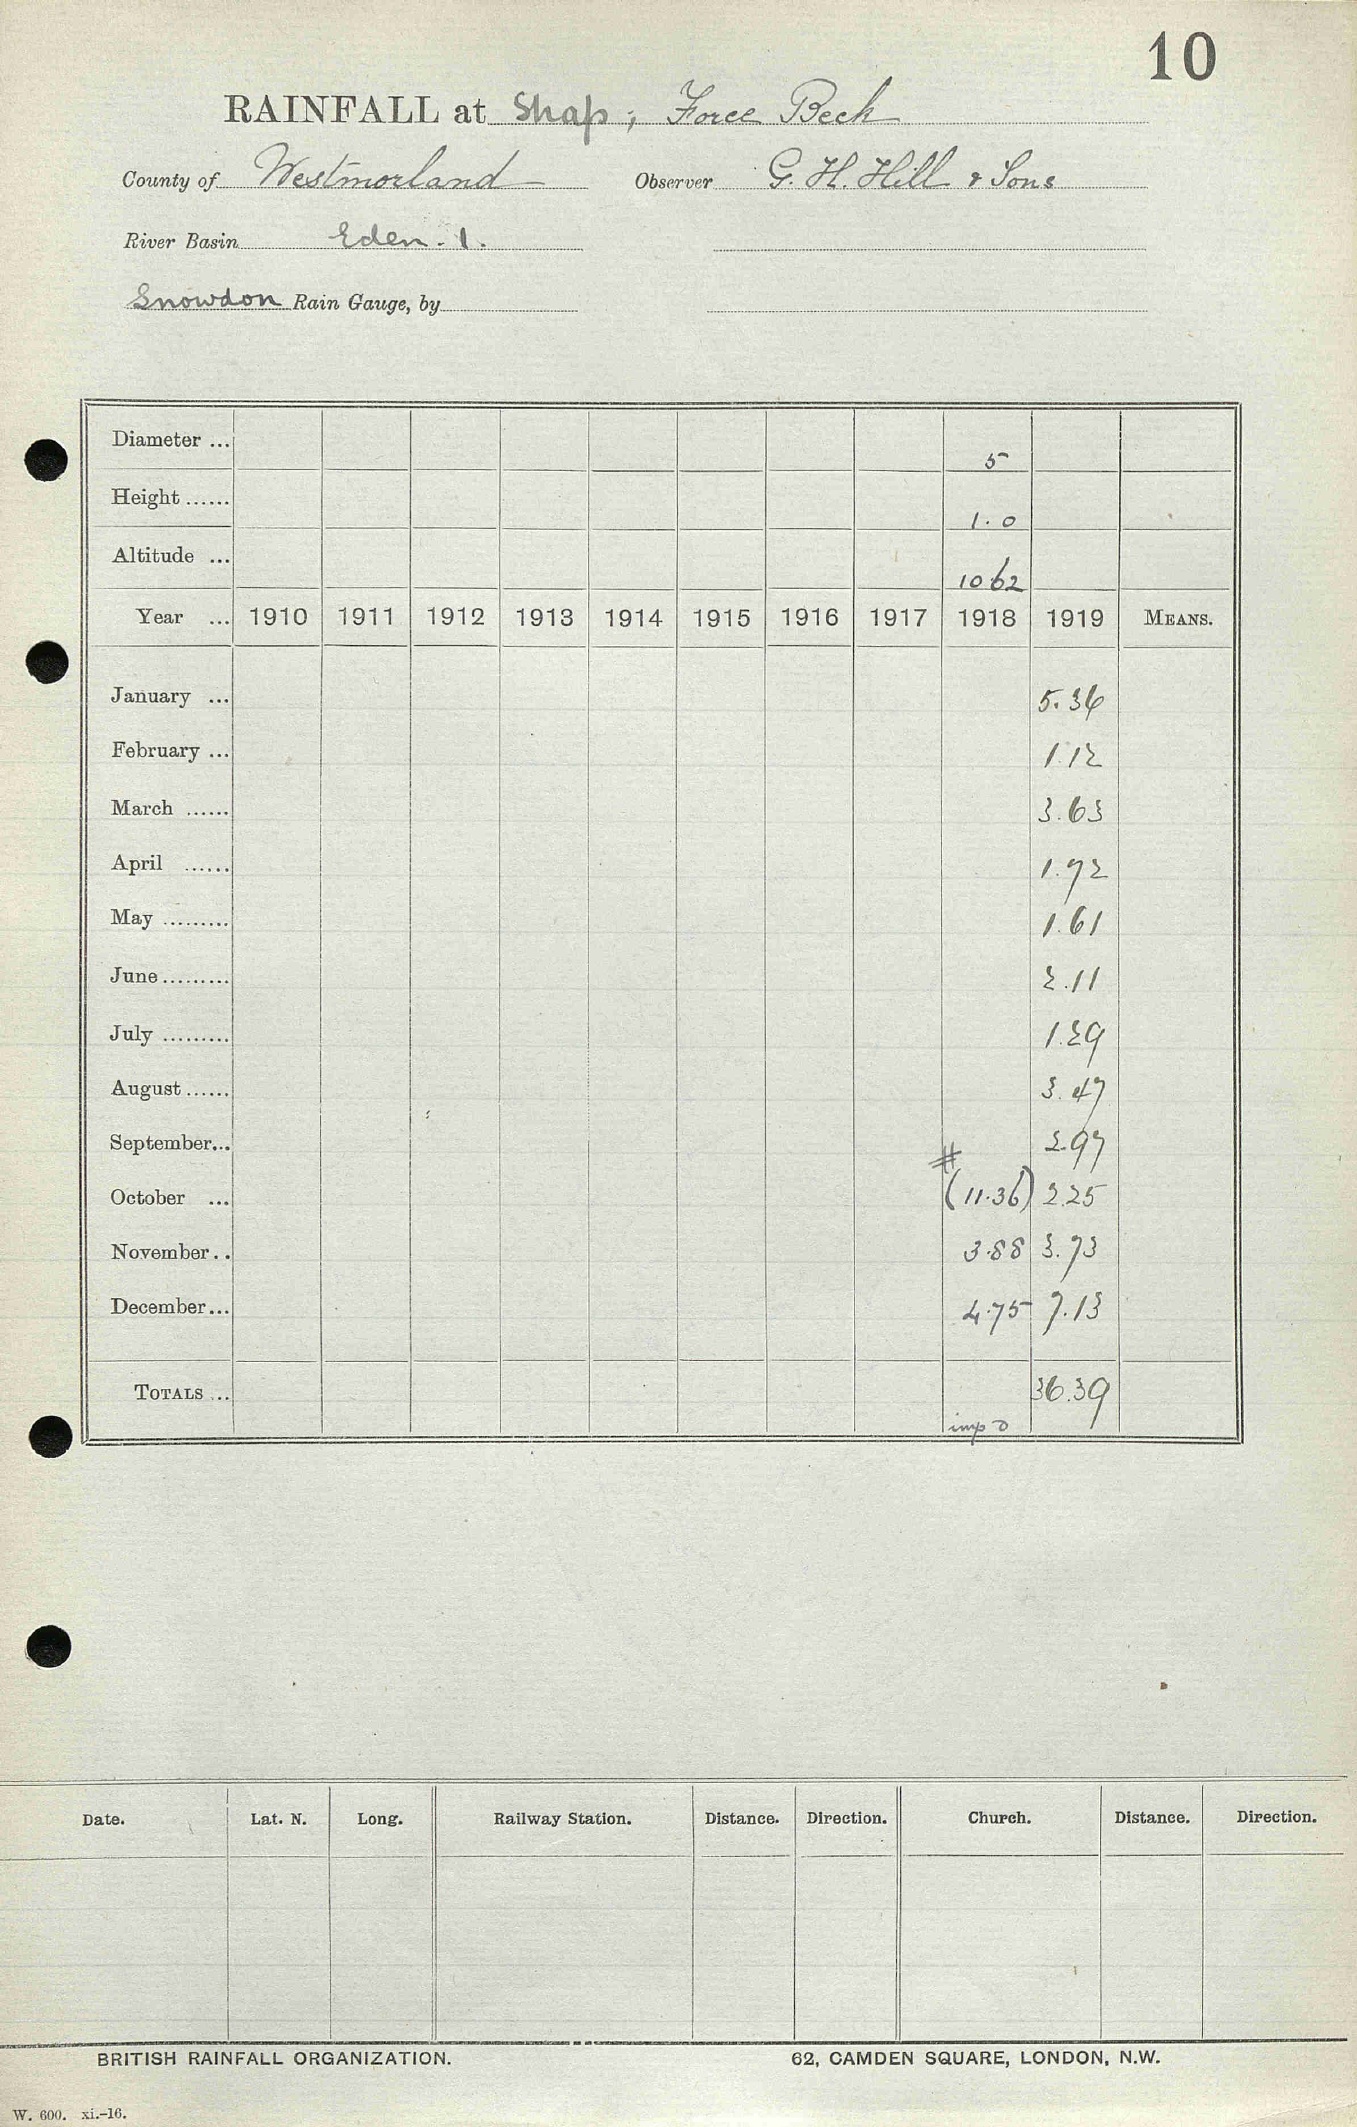 10
RAINFALL at Shap, Force Beck
County of Westmorland Observer G. H. Hill & Sons
River Basin Eden. 1.
Snowdon Rain Gauge, by
Diameter ... 5
Height ...... 1.0
Altitude ... 1062
Year ... 1910 1911 1912 1913 1914 1915 1916 1917 1918 1919 MEANS.
January ... 5.36
February ... 1.12
March ...... 3.63
April ...... 1.72
May ......... 1.61
June ......... 2.11
July ......... 1.29
August ...... 3.47
September... # 2.97
October ... (11.36) 2.25
November .. 3.88 3.73
December... 4.75 7.13
TOTALS ... 36.39
imp
Date. Lat. N. Long. Railway Station. Distance. Direction. Church. Distance. Direction.
BRITISH RAINFALL ORGANIZATION. 62, CAMDEN SQUARE, LONDON, N.W.
W. 600. xi.-16.